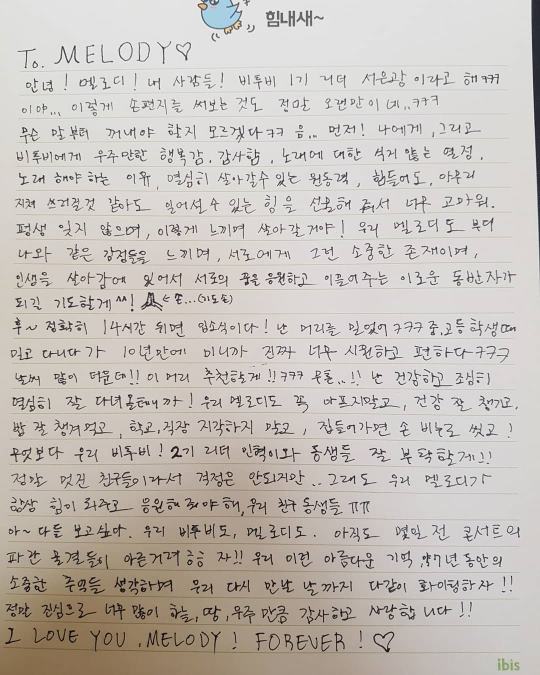 힘내새~
To. MELODY♡
안녕! 멜로디! 내 사람들! 비투비 1기 리더 서은광이라고 해ㅋㅋㅋ
이야... 이렇게 손편지를 써보는 것도 정말 오랜만이네..ㅋㅋㅋ
무슨 말부터 꺼내야 할지 모르겠다ㅋㅋ 음.. 먼저! 나에게, 그리고
비투비에게 우주만한 행복감, 감사함, 노래에 대한 식지 않는 열정,
노래 해야하는 이유, 열심히 살아갈수 있는 원동력, 힘들어도, 아무리
지쳐 쓰러질것 같아도 일어설수 있는 힘을 선물해 줘서 너무 고마워.
평생 잊지 않으며, 이렇게 느끼며 살아갈게야! 우리 멜로디도 부디
나와 같은 감정들을 느끼며, 서로에게 그런 소중한 존재이며,
인생을 살아감에 있어서 서로의 꿈을 응원하고 이끌어주는 이로운 동반자가
되길 기도할게^^! ← 손...(기도손)
후~ 정확히 14시간 뒤면 입소식이다! 난 머리를 밀었어ㅋㅋㅋ 중,고등학생때
밀고 다니다가 10년만에 미니까 진짜 너무 시원하고 편하다ㅋㅋㅋ
날씨 많이 더운데!! 이 머리 추천할게!!ㅋㅋㅋ 무튼..!! 난 건강하고 조심히
열심히 잘 다녀올테니까! 우리 멜로디도 꼭 아프지말고, 건강 잘 챙기고,
밥 잘 챙겨먹고, 학교,직장 지각하지 말고, 집들어가면 손 비누로 씻고!
무엇보다 우리 비투비! 2기 리더 민혁이와 동생들 잘 부탁할게!!
정말 멋진 친구들이라서 걱정은 안되지만.. 그래도 우리 멜로디가
항상 힘이 되주고 응원해줘야해, 우리 친구 동생들 ㅠㅠ
아~ 다들 보고싶다. 우리 비투비도, 멜로디도. 아직도 몇일 전 콘서트의
파란 물결들이 아른거려 흐흐 자!! 우리 이런 아름다운 기억, 약7년 동안의
소중한 추억들 생각하며 우리 다시 만날 날까지 다같이 화이팅하자!!
정말 진심으로 너무 많이 하늘,땅,우주 만큼 감사하고 사랑합니다!!
I LOVE YOU, MELODY! FOREVER!♡
ibis